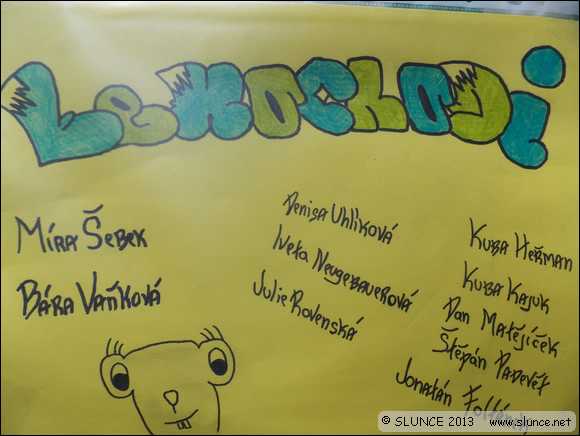 Lemochodi
Míra Šebek
Bára Vaňková
Denisa Uhlíková
Iveta Neugebauerová
Julie Rovenská
Kuba Heřman
Kuba Kajuk
Dan Matějíček
Štěpán Padevět
Jonatán
© SLUNCE 2013 www.slunce.net